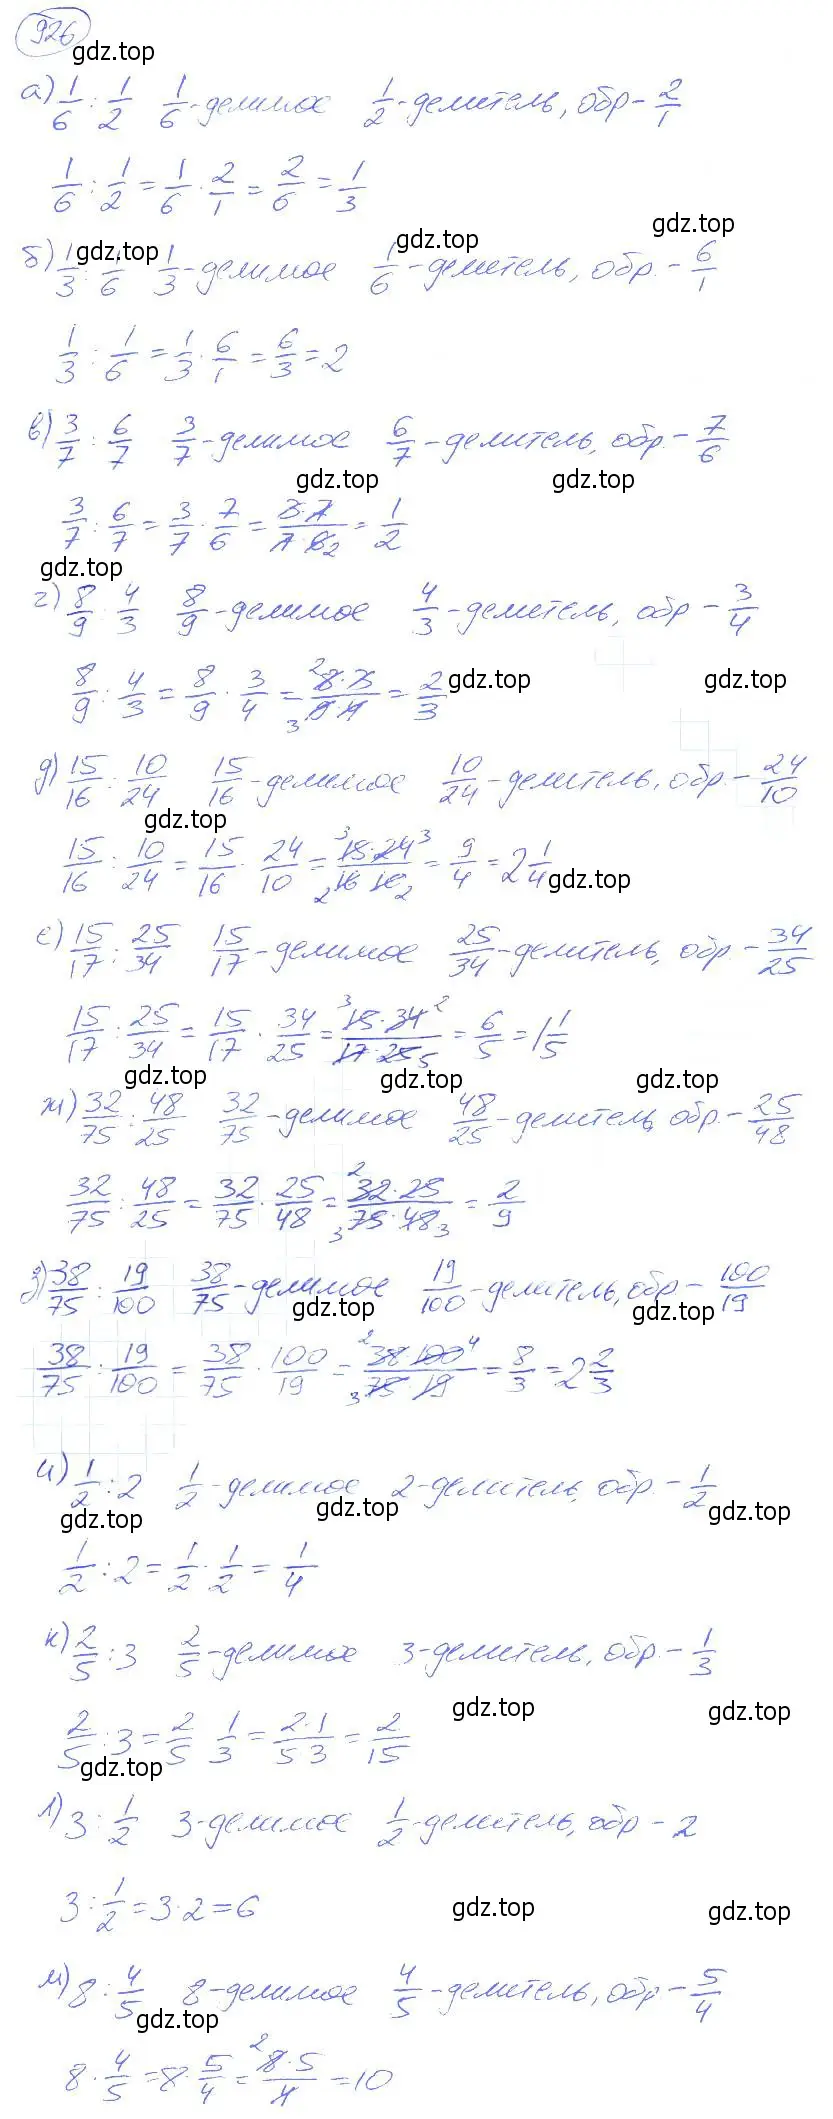 926
gdz.top
а) 1/6 : 1/2 1/6 - делимое 1/2 - делитель, обр - 2/1
1/6 : 1/2 = 1/6 · 2/1 = 2/6 = 1/3
gdz.top gdz.top gdz.top
б) 1/3 : 1/6 1/3 - делимое 1/6 - делитель, обр. - 6/1
1/3 : 1/6 = 1/3 · 6/1 = 6/3 = 2
в) 3/7 : 6/7 3/7 - делимое 6/7 - делитель, обр. - 7/6
gdz.top gdz.top
3/7 : 6/7 = 3/7 · 7/6 = 3·7/7·6 2 = 1/2
gdz.top
г) 8/9 : 4/3 8/9 - делимое 4/3 - делитель, обр - 3/4
8/9 : 4/3 = 8/9 · 3/4 = 2 8·3/3 9·4 = 2/3 gdz.top gdz.top
д) 15/16 : 10/24 15/16 - делимое 10/24 - делитель, обр. - 24/10
gdz.top
15/16 : 10/24 = 15/16 · 24/10 = 3 15·24 3/2 16 10 2 = 9/4 = 2 1/4 gdz.top
е) 15/17 : 25/34 15/17 - делимое 25/34 - делитель, обр. - 34/25
15/17 : 25/34 = 15/17 · 34/25 = 3 15·34 2/17·25 5 = 6/5 = 1 1/5
gdz.top gdz.top gdz.top
ж) 32/75 : 48/25 32/75 - делимое 48/25 - делитель, обр. - 25/48
32/75 : 48/25 = 32/75 · 25/48 = 2 32·25/3 75·48 3 = 2/9
з) 38/75 : 19/100 38/75 - делимое 19/100 - делитель, обр - 100/19
gdz.top gdz.top
38/75 : 19/100 = 38/75 · 100/19 = 2 38·100 4/3 75·19 = 8/3 = 2 2/3
и) 1/2 : 2 1/2 - делимое 2 - делитель, обр. - 1/2
gdz.top gdz.top gdz.top
1/2 : 2 = 1/2 · 1/2 = 1/4
к) 2/5 : 3 2/5 - делимое 3 - делитель, обр. - 1/3
gdz.top gdz.top
2/5 : 3 = 2/5 1/3 = 2·1/5 3 = 2/15
gdz.top
л) 3 : 1/2 3 - делимое 1/2 - делитель, обр - 2
3 : 1/2 = 3·2 = 6 gdz.top gdz.top
м) 8 : 4/5 8 - делимое 4/5 - делитель, обр. - 5/4
gdz.top
8 · 4/5 = 8 · 5/4 = 2 8·5/4 = 10